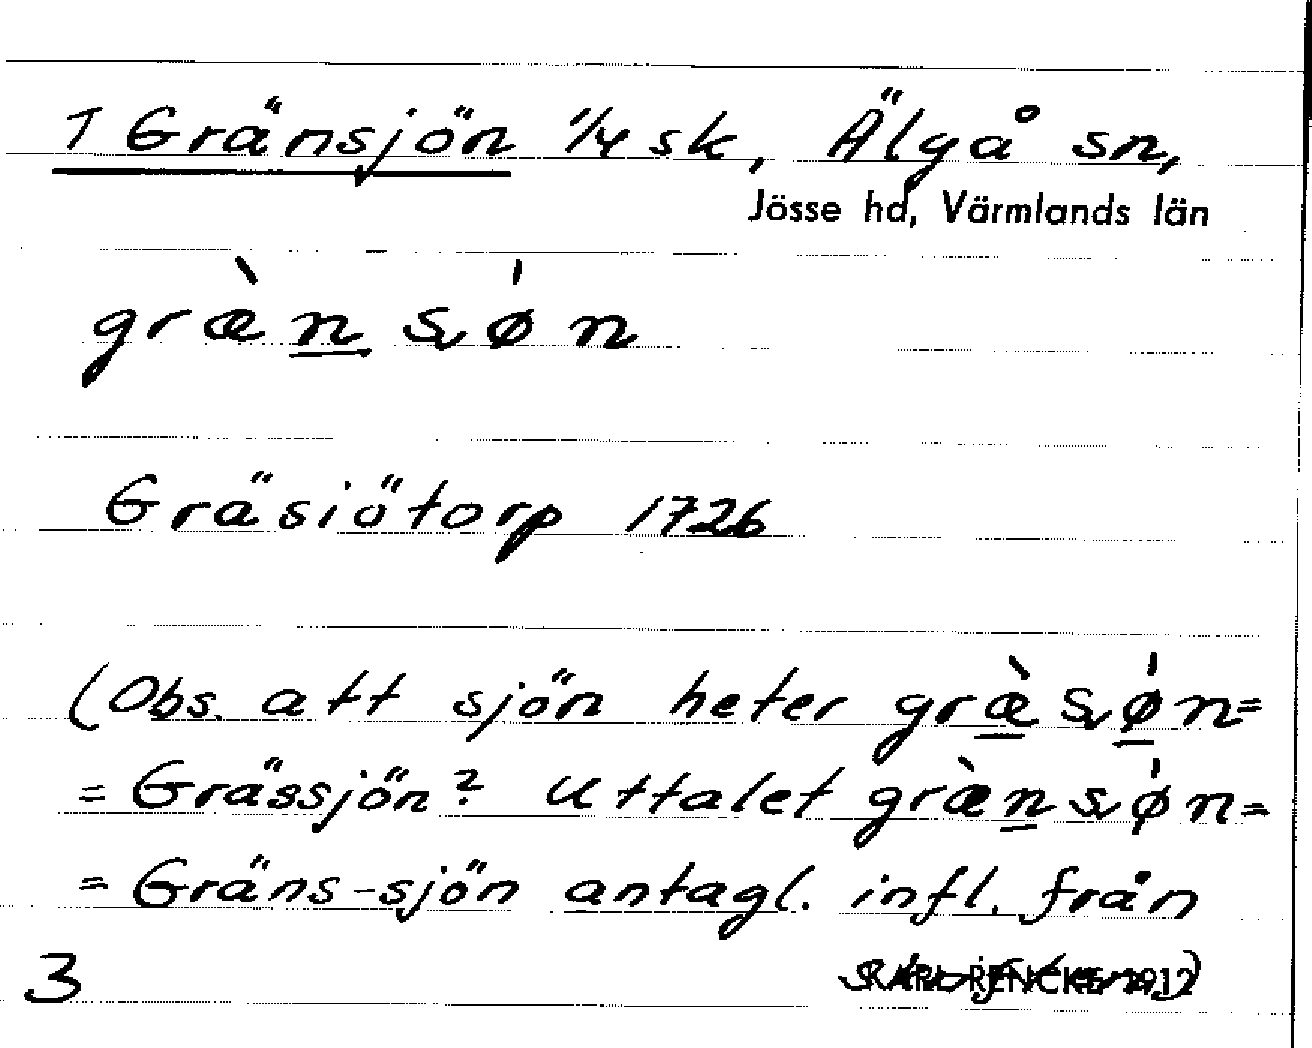 T Gränsjön 1/4 sk, Älgå sn,
Jösse hd, Värmlands län
græ̀nsøn̍
Gräsiötorp 1726
(Obs. att sjön heter græ̀sø̍n=
= Grässjön? Uttalet græ̀nsø̍n=
= Gräns-sjön antagl. infl. från
skriften)
KARL RENCKE 1912
3